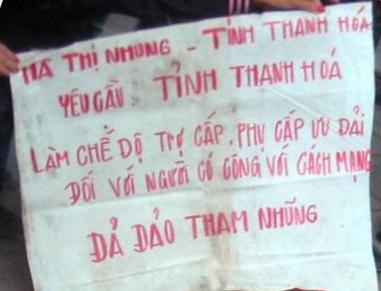 HÀ THỊ NHUNG - TỈNH THANH HÓA
YÊU CẦU: TỈNH THANH HOÁ
LÀM CHẾ ĐỘ TRỢ CẤP, PHỤ CẤP ƯU ĐÃI
ĐỐI VỚI NGƯỜI CÓ CÔNG VỚI CÁCH MẠNG
ĐẢ ĐẢO THAM NHŨNG